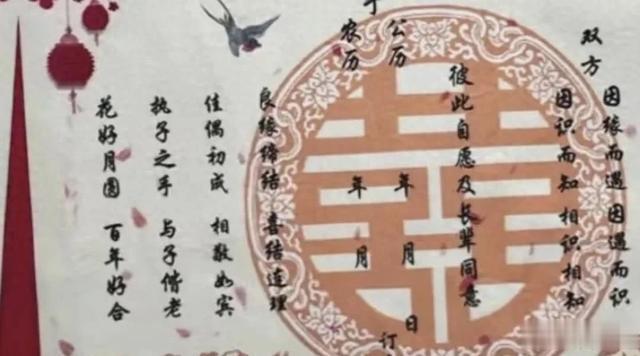 双方
因缘而遇 因遇而识
因识而知 相识相知
彼此自愿及长辈同意
于
公历 年 月 日 订
农历 年 月
良缘缔结 喜结连理
佳偶初成 相敬如宾
执子之手 与子偕老
花好月圆 百年好合
囍